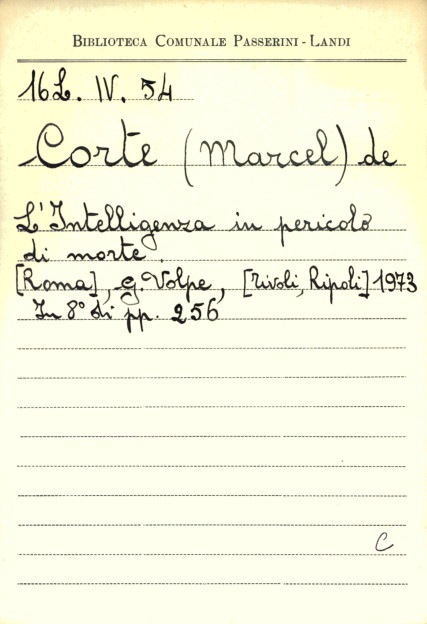 BIBLIOTECA COMUNALE PASSERINI - LANDI
16L. IV. 54
Corte (Marcel) de
L'Intelligenza in pericolo
di morte.
[Roma], G. Volpe, [Tivoli, Ripoli] 1973
In 8° di pp. 256
C